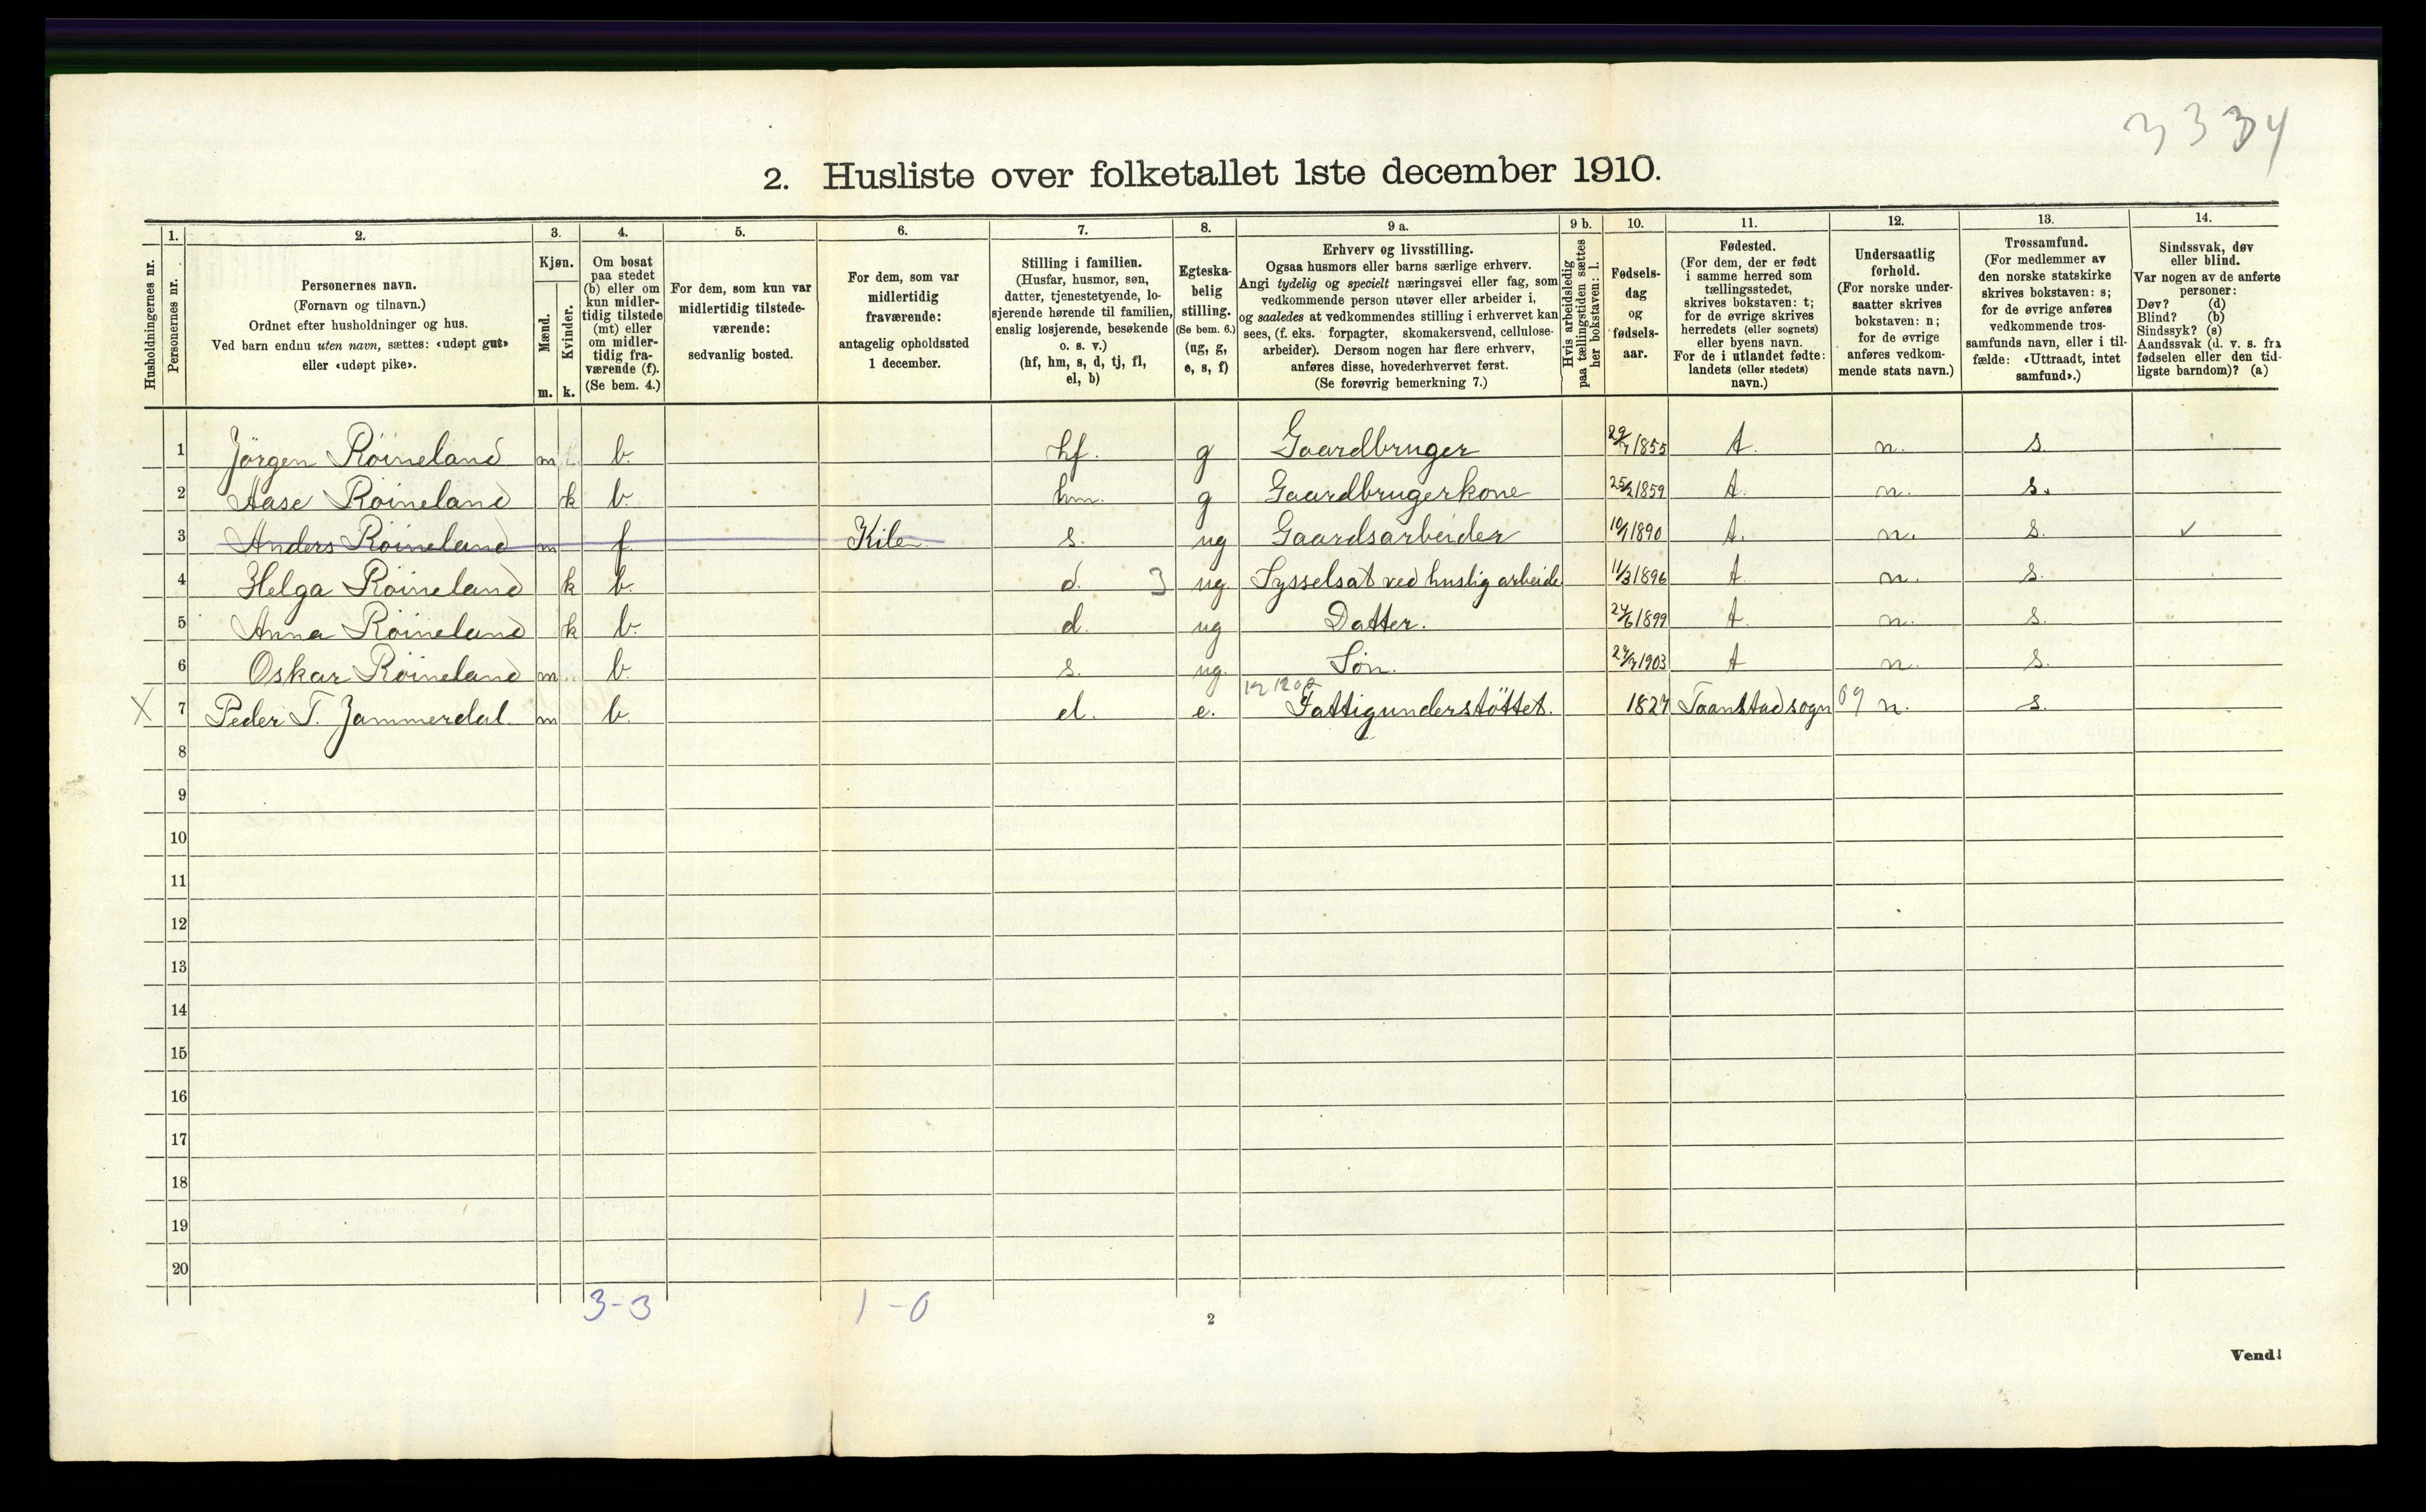 3334
2. Husliste over folketallet 1ste december 1910.
Husholdningernes nr.
1. Personernes nr.
2. Personernes navn.
(Fornavn og tilnavn.)
Ordnet efter husholdninger og hus.
Ved barn endnu uten navn, sættes: «udøpt gut»
eller «udøpt pike».
3. Kjøn.
Mænd. m.
Kvinder. k.
4. Om bosat
paa stedet
(b) eller om
kun midler-
tidig tilstede
(mt) eller
om midler-
tidig fra-
værende (f).
(Se bem. 4.)
5. For dem, som kun var
midlertidig tilstede-
værende:
sedvanlig bosted.
6. For dem, som var
midlertidig
fraværende:
antagelig opholdssted
1 december.
7. Stilling i familien.
(Husfar, husmor, søn,
datter, tjenestetyende, lo-
sjerende hørende til familien,
enslig losjerende, besøkende
o. s. v.)
(hf, hm, s, d, tj, fl,
el, b)
8. Egteska-
belig
stilling.
(Se bem. 6.)
(ug, g,
e, s, f)
9 a. Erhverv og livsstilling.
Ogsaa husmors eller barns særlige erhverv.
Angi tydelig og specielt næringsvei eller fag, som
vedkommende person utøver eller arbeider i,
og saaledes at vedkommendes stilling i erhvervet kan
sees, (f. eks. forpagter, skomakersvend, cellulose-
arbeider). Dersom nogen har flere erhverv,
anføres disse, hovederhvervet først.
(Se forøvrig bemerkning 7.)
9 b. Hvis arbeidsledig
paa tællingstiden sættes
her bokstaven: l.
10. Fødsels-
dag
og
fødsels-
aar.
11. Fødested.
(For dem, der er født
i samme herred som
tællingsstedet,
skrives bokstaven: t;
for de øvrige skrives
herredets (eller sognets)
eller byens navn.
For de i utlandet fødte:
landets (eller stedets)
navn.)
12. Undersaatlig
forhold.
(For norske under-
saatter skrives
bokstaven: n;
for de øvrige
anføres vedkom-
mende stats navn.)
13. Trossamfund.
(For medlemmer av
den norske statskirke
skrives bokstaven: s;
for de øvrige anføres
vedkommende tros-
samfunds navn, eller i til-
fælde: «Uttraadt, intet
samfund».)
14. Sindssvak, døv
eller blind.
Var nogen av de anførte
personer:
Døv? (d)
Blind? (b)
Sindssyk? (s)
Aandssvak (d. v. s. fra
fødselen eller den tid-
ligste barndom)? (a)
1 Jörgen Röineland m b. hf. g Gaardbruger 1855 t. n. s.
2 Aase Röineland k b. hm. g Gaardbrugerkone 25/2 1859 t. n. s.
3 Anders Röineland m f Kile s. ug Gaardsarbeider 1890 t. n. s. ✓
4 Helga Röineland k b. d. ug. Sysselsat ved huslig arbeide 11/3 1896 t n. s.
5 Anna Röineland k b. d. ug Datter. 24/6 1899 t. n. s.
6 Oskar Röineland m b. s. ug. Sön. 1903 t n. s.
X 7 Peder T. Jammerdal. m b. el. e. Fattigunderstöttet. 1827 Taanstad sogn 09 n. s.
8
9
10
11
12
13
14
15
16
17
18
19
20
3-3 1-0
2
Vend!